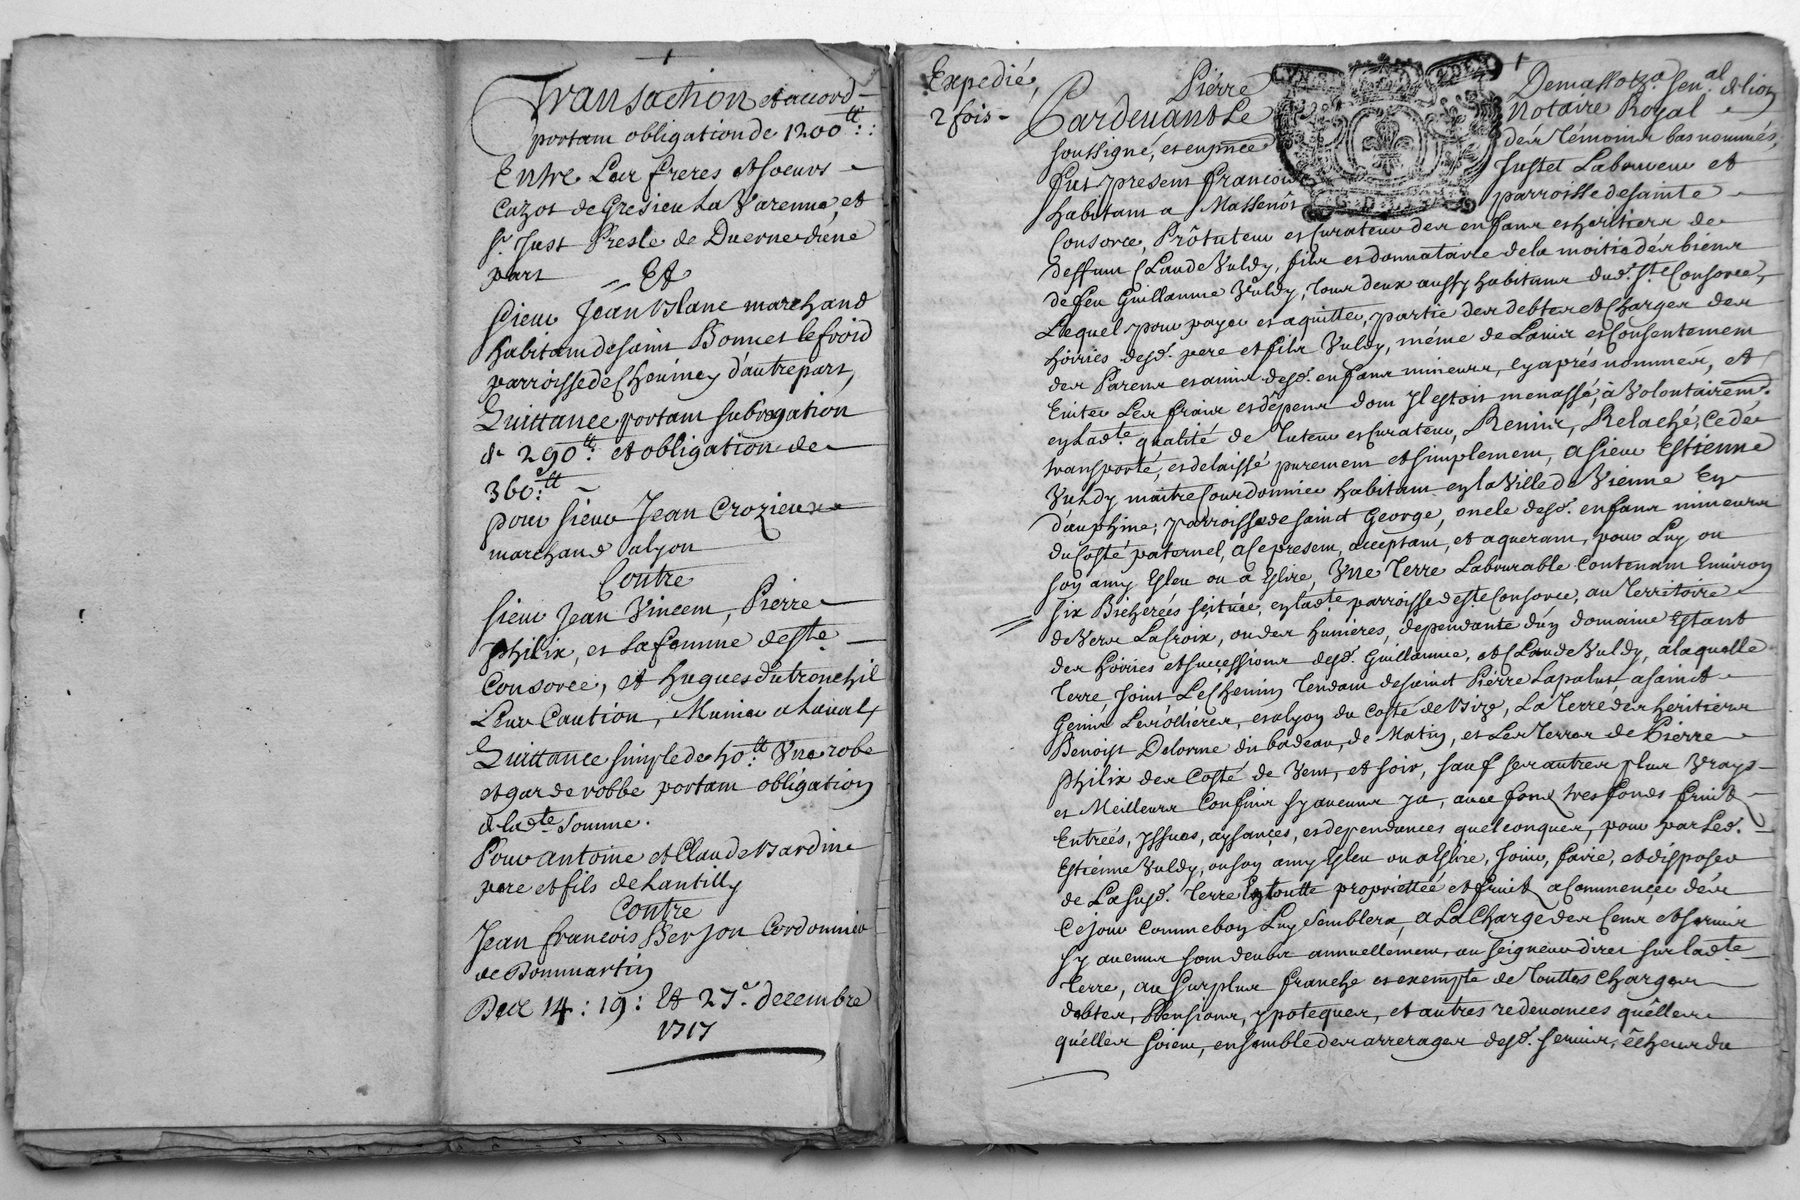 Transaction et accord
portant obligation de 1200tt:
Entre Les freres et soeurs
Cazot de Gresieu La Varenne, et
Sr. Just Presle de Duerne d'une
part Et
Sieur Jean Blanc marchand
habitant de saint Bonnet le froid
parroisse de Cheuiney d'autre part,
Quittance portant subrogation
de 290tt: et obligation de
360:tt
pour sieur Jean Crozieu
marchand a lyon
Contre
Sieur Jean Vincent, Pierre
philix, et sa femme de ste
Consorce, et hugues dutronchil
Leur Caution, Munier a Laval,
Quittance simple de 40:tt Vne robe
et garderobbe portant obligation
de ladte Somme.
Pour antoine et Claude Bardine
pere et fils de Lantilly
Contre
Jean francois Berjon Cordonnier
de Dommartin
Des 14: 19: Et 27e decembre
1717
Expedié,
2 fois
Pardeuant Le
Pierre
Notaire Royal
soussigné, et en pnce
des témoins bas nommés,
fut present francois
Justet Laboureur et
habitant a Massenot
parroisse de sainte
Consorce, Prôtuteur et Curateur des enfans et heritiers de
deffunt Claude Vuldy, fils et donnataire de la moitié des biens
de feu Guillaume Vuldy, tous deux aussy habitans dud. ste Consorce,
Lequel pour payer et aquitter, partie des debtes et charges des
hoiries desd. pere et fils Vuldy, même de Lauis et Consentement
des Parens et amis desd. enfans mineurs, cy aprés nommés, et
Euiter Les frais et dépens dont Il estoit menassé, à Volontairemt.
en ladte qualité de Tuteur et Curateur, Remis, Relaché, Cedé
transporté, et delaissé purement et simplement, a sieur Estienne
Vuldy maitre Courdonnier habitant en la Ville de Vienne En
d'auphine, parroisse de sainct George, oncle desd. enfans mineurs
du Costé paternel, a Ce present, acceptant, et aquerant, pour Luy ou
son amy Esleu ou a Eslire, Vne Terre Labourable Contenant Enuiron
six Bicherées scituée, en ladte parroisse de ste Consorce, au Territoire
de Vers La Croix, ou des humieres, dependante d'un domaine Estant
des hoiries et successions desd. Guillaume, et Claude Vuldy, a laquelle
Terre, Joint Le Chemin Tendant de sainct Pierre Lapalut, a sainct
Genis Lesollieres, et a lyon du Costé de bize, La Terre des heritiers
Benoist Delorme dit badeau, de Matin, et Les Terres de Pierre
philix des Costé de Vent, et soir, sauf ses autres plus Vrays
et Meilleurs Confins sy aucuns y a, auec fond tresfonds fruits
Entrées, yssues, aysances, et dependances quelconques, pour par Led.
Estienne Vuldy, ou son amy Esleu ou a Eslire, Jouir, faire, et disposer
de La susd. Terre En toutte proprietteé et fruits a Commencer dés
Ce jour Comme bon Luy Semblera, a La Charge des Cens et seruis
sy aucuns sont deubs annuellement, au seigneur direct sur ladte
Terre, au surplus franche et exempte de Touttes Charges
debtes, Pensions, ypoteques, et autres redeuances quêlles
qu'elles soient, ensemble des arrerages desd. seruis, êcheus du